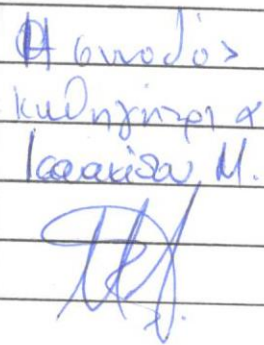 Η συνοδός
καθηγήτρια
Ισαακίδου Μ.